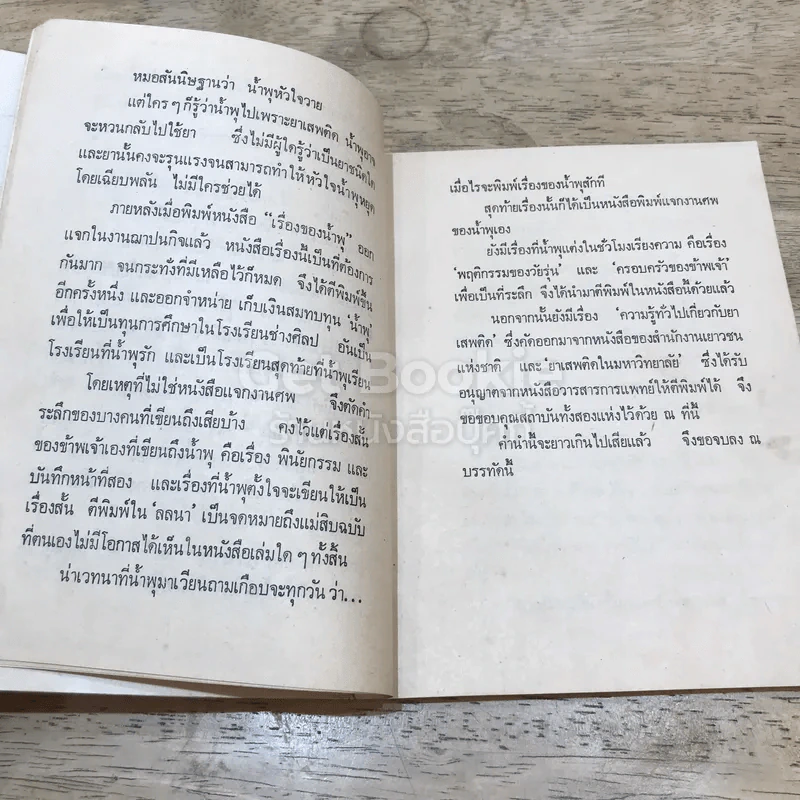 หมอสันนิษฐานว่า น้ำพุหัวใจวาย
แต่ใคร ๆ ก็รู้ว่าน้ำพุไปเพราะยาเสพติด น้ำพุอาจ
จะหวนกลับไปใช้ยา ซึ่งไม่มีผู้ใดรู้ว่าเป็นยาชนิดใด
และยานั้นคงจะรุนแรงจนสามารถทำให้หัวใจน้ำพุหยุด
โดยเฉียบพลัน ไม่มีใครช่วยได้
ภายหลังเมื่อพิมพ์หนังสือ “เรื่องของน้ำพุ” ออก
แจกในงานฌาปนกิจแล้ว หนังสือเรื่องนี้เป็นที่ต้องการ
กันมาก จนกระทั่งที่มีเหลือไว้ก็หมด จึงได้ตีพิมพ์ขึ้น
อีกครั้งหนึ่ง และออกจำหน่าย เก็บเงินสมทบทุน ‘น้ำพุ’
เพื่อให้เป็นทุนการศึกษาในโรงเรียนช่างศิลป อันเป็น
โรงเรียนที่น้ำพุรัก และเป็นโรงเรียนสุดท้ายที่น้ำพุเรียน
โดยเหตุที่ไม่ใช่หนังสือแจกงานศพ จึงตัดคำ
ระลึกของบางคนที่เขียนถึงเสียบ้าง คงไว้แต่เรื่องสั้น
ของข้าพเจ้าเองที่เขียนถึงน้ำพุ คือเรื่อง พินัยกรรม และ
บันทึกหน้าที่สอง และเรื่องที่น้ำพุตั้งใจจะเขียนให้เป็น
เรื่องสั้น ตีพิมพ์ใน ‘ลลนา’ เป็นจดหมายถึงแม่สิบฉบับ
ที่ตนเองไม่มีโอกาสได้เห็นในหนังสือเล่มใด ๆ ทั้งสิ้น
น่าเวทนาที่น้ำพุมาเวียนถามเกือบจะทุกวัน ว่า...
เมื่อไรจะพิมพ์เรื่องของน้ำพุสักที
สุดท้ายเรื่องนั้นก็ได้เป็นหนังสือพิมพ์แจกงานศพ
ของน้ำพุเอง
ยังมีเรื่องที่น้ำพุแต่งในชั่วโมงเรียงความ คือเรื่อง
‘พฤติกรรมของวัยรุ่น’ และ ‘ครอบครัวของข้าพเจ้า’
เพื่อเป็นที่ระลึก จึงได้นำมาตีพิมพ์ในหนังสือนี้ด้วยแล้ว
นอกจากนั้นยังมีเรื่อง ‘ความรู้ทั่วไปเกี่ยวกับยา
เสพติด’ ซึ่งคัดออกมาจากหนังสือของสำนักงานเยาวชน
แห่งชาติ และ ‘ยาเสพติดในมหาวิทยาลัย’ ซึ่งได้รับ
อนุญาตจากหนังสือวารสารการแพทย์ให้ตีพิมพ์ได้ จึง
ขอขอบคุณสถาบันทั้งสองแห่งไว้ด้วย ณ ที่นี้
คำนำนี้จะยาวเกินไปเสียแล้ว จึงขอจบลง ณ
บรรทัดนี้